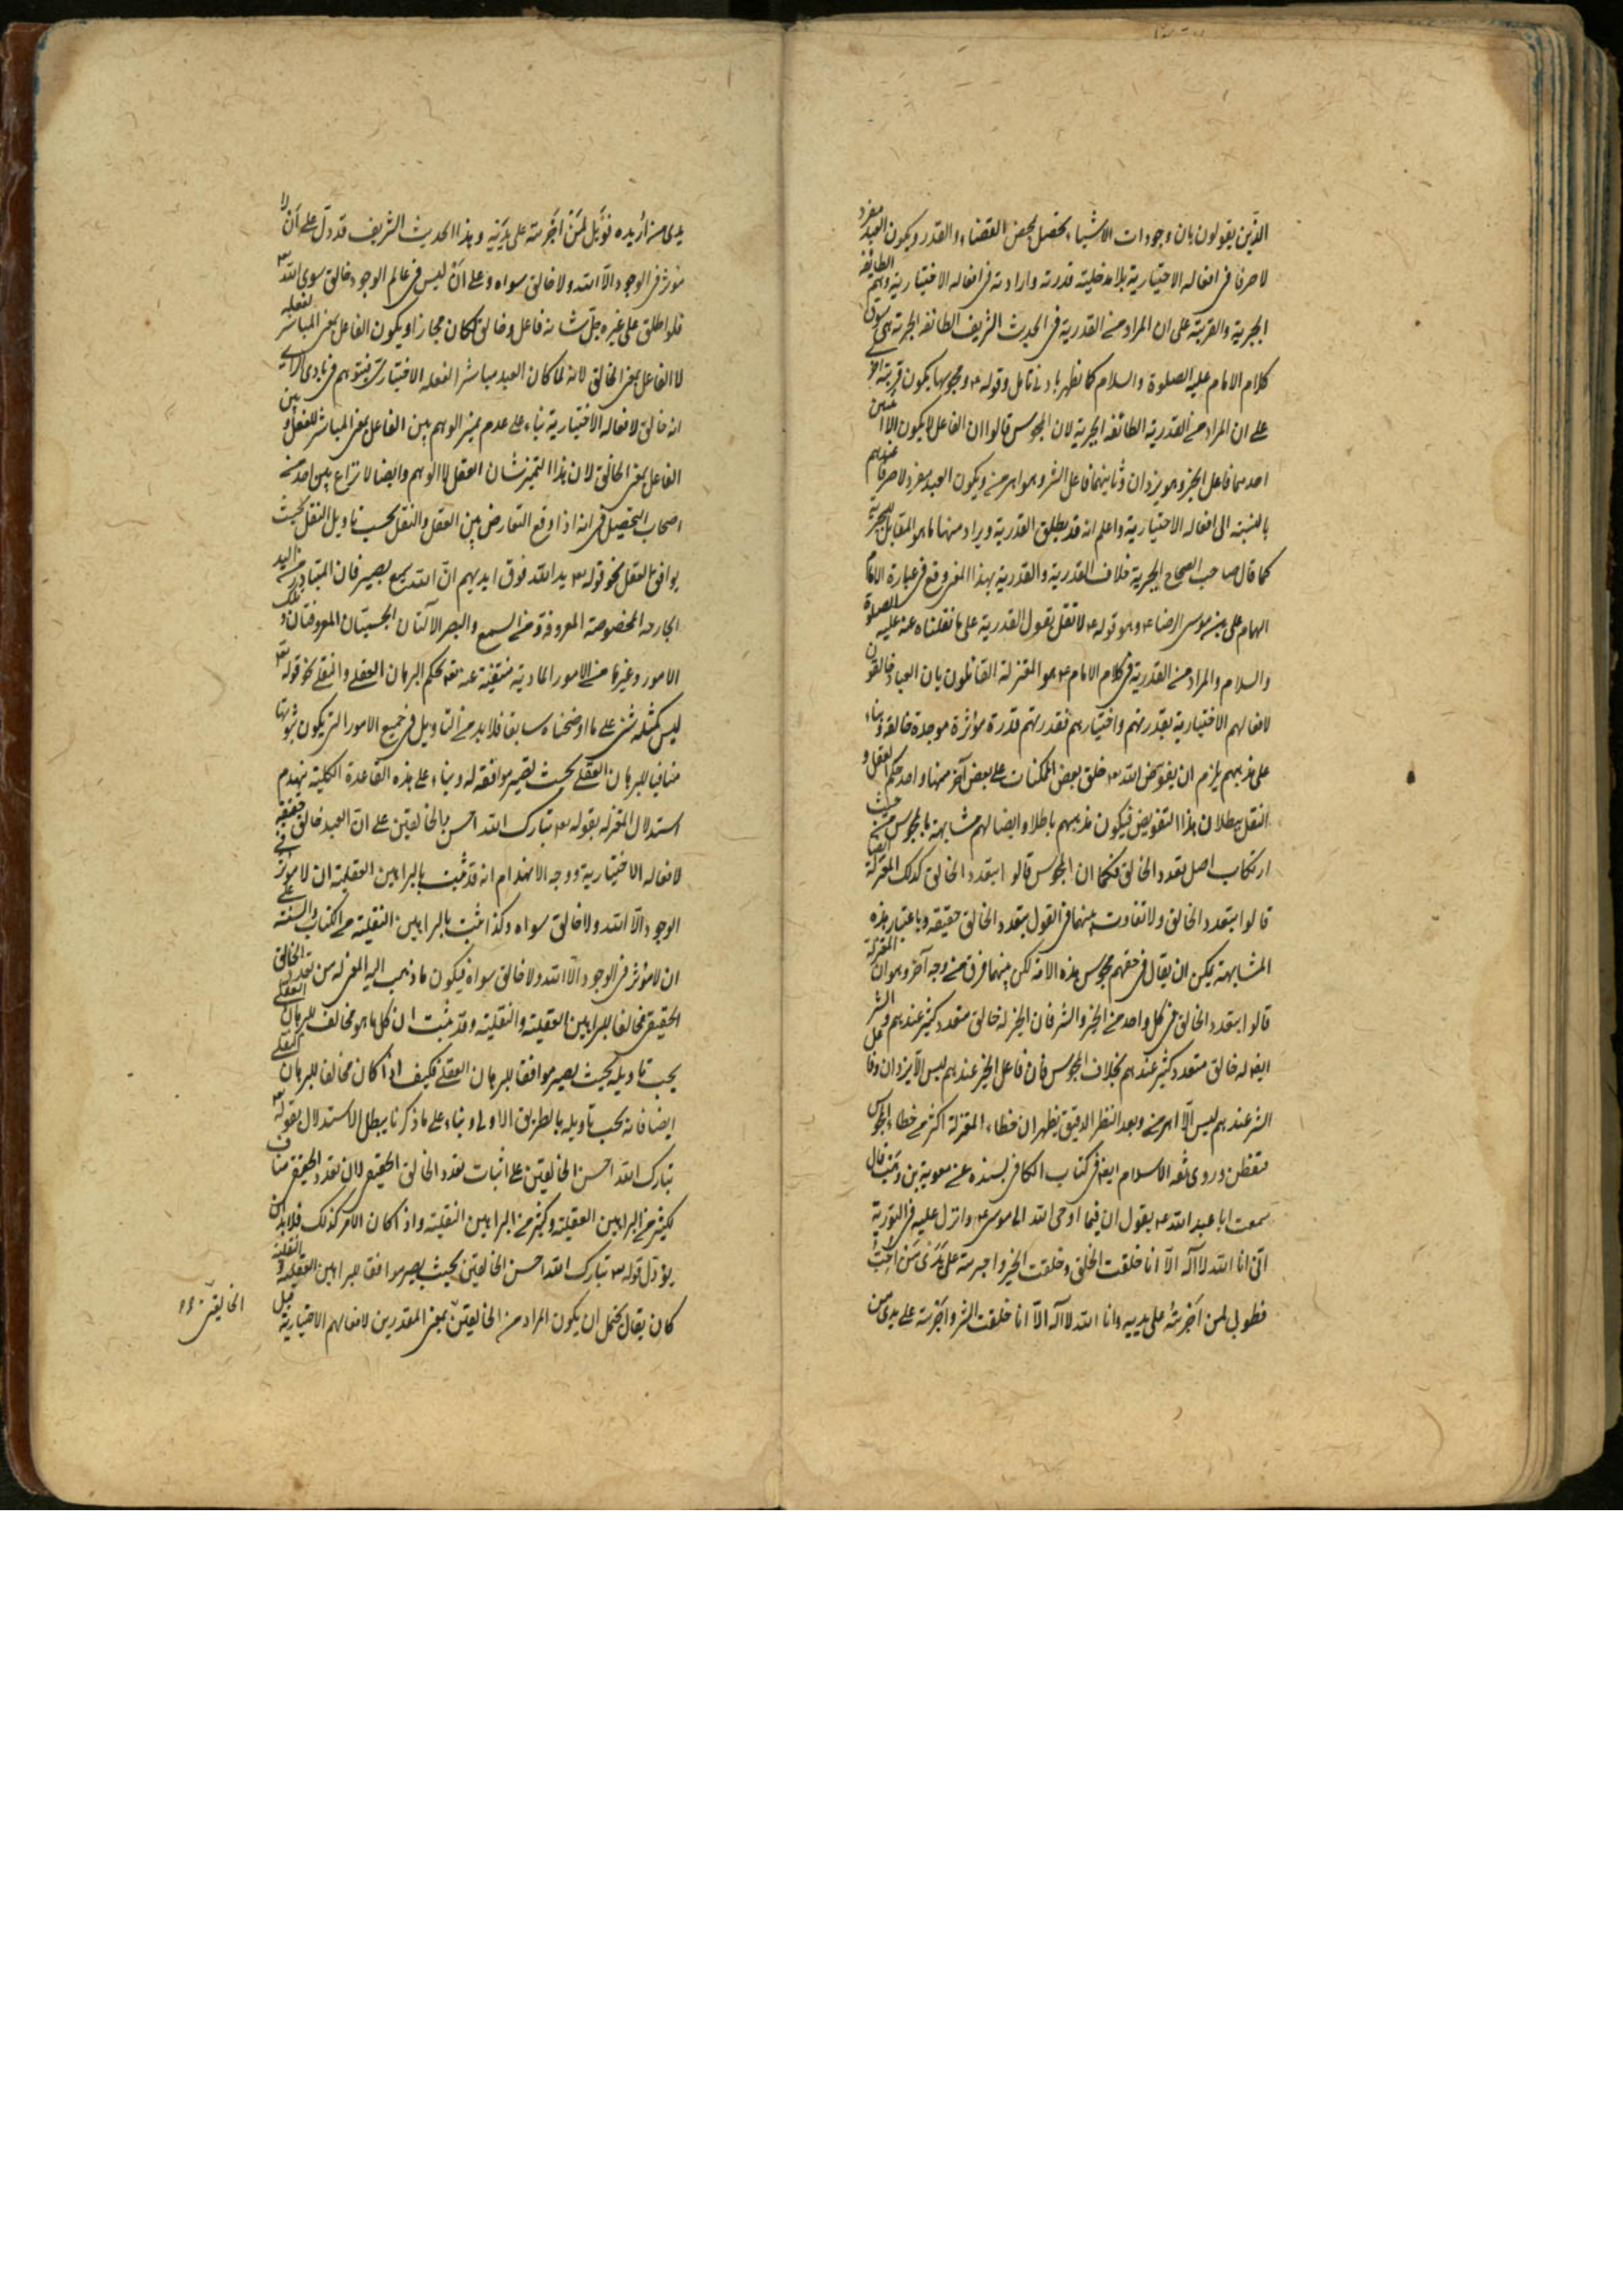 الذين يقولون بان وجودات الاشياء يحصل بمحض القضاء والقدر ويكون العبد مفردا
لا صرفا فى افعاله الاختيارية بلا مدخلية قدرته وارادته فى افعاله الاختيارية وهم الطائفة
الجبرية والقرينة على ان المراد من القدرية فى الحديث الشريف الطائفة الجبرية هى سوق
كلام الامام عليه الصلوة والسلام كما يظهر بادنى تامل وقوله ع ومجوسها يكون قرينة اخرى
على ان المراد من القدرية الطائفة الجبرية لان المجوس قالوا ان الفاعل لا يكون الا اثنين
احدهما فاعل الخير وهو يزدان وثانيهما فاعل الشر وهو اهرمن ويكون العبد مفردا صرفا عندهم
بالنسبة الى افعاله الاختيارية واعلم انه قد يطلق القدرية ويراد منها ما هو المقابل للجبرية
كما قال صاحب الصحاح الجبرية خلاف القدرية والقدرية بهذا المعنى وقع فى عبارة الامام
الهمام على بن موسى الرضا ع وهو قوله ع لا تقل بقول القدرية على ما نقلناه عنه عليه الصلوة
والسلام والمراد من القدرية فى كلام الامام ع هو المعتزلة القائلون بان العباد خالقون
لافعالهم الاختيارية بقدرتهم واختيارهم فقدرتهم قدرة مؤثرة موجدة خالقة وبناء
على مذهبهم يلزم ان يفوض الله تع خلق بعض الممكنات على بعض آخر منها واحد حكم العقل و
النقل ببطلان هذا التفويض فيكون مذهبهم باطلا وايضا لهم مشابهة بالمجوس من حيث
ارتكاب اصل تعدد الخالق فكما ان المجوس قالوا بتعدد الخالق كذلك المعتزلة ايضا
قالوا بتعدد الخالق ولا تفاوت بينهما فى القول بتعدد الخالق حقيقة وباعتبار هذه
المشابهة يمكن ان يقال فى حقهم مجوس هذه الامة لكن بينهما فرق من وجه آخر وهو ان المعتزلة
قالوا بتعدد الخالق فى كل واحد من الخير والشر فان الخير له خالق متعدد كثير عندهم والشر
ايضا له خالق متعدد كثير عندهم بخلاف المجوس فان فاعل الخير عندهم ليس الا يزدان وفاعل
الشر عندهم ليس الا اهرمن وبعد النظر الدقيق يظهر ان خطاء المعتزلة اكثر من خطاء المجوس
فتفطن وروى ثقة الاسلام ايضا فى كتاب الكافى بسنده عن معوية بن وهب قال
سمعت ابا عبد الله ع يقول ان فيما اوحى الله الى موسى ع وانزل عليه فى التورية
انى انا الله لا اله الا انا خلقت الخلق وخلقت الخير واجريته على يدى من احب
فطوبى لمن اجريته على يديه وانا الله لا اله الا انا خلقت الشر واجريته على يدى من
يدى من اريده فويل لمن اجريته على يديه وهذا الحديث الشريف قد دل على ان لا
مؤثر فى الوجود الا الله ولا خالق سواه وعلى ان ليس فى عالم الوجود خالق سوى الله تع
فلو اطلق على غيره جل شانه فاعل وخالق لكان مجازا ويكون الفاعل بمعنى المباشر لفعله
لا الفاعل بمعنى الخالق لانه لما كان العبد مباشرا لفعله الاختيارى فيتوهم فى بادى الراى
انه خالق لافعاله الاختيارية بناء على عدم تميز الوهم بين الفاعل بمعنى المباشر للفعل وبين
الفاعل بمعنى الخالق لان هذا التميز شان العقل لا الوهم وايضا لا نزاع بين احد من
اصحاب التحصيل فى انه اذا وقع التعارض بين العقل والنقل يجب تاويل النقل بحيث
يوافق بالعقل نحو قوله تع يد الله فوق ايديهم ان الله سميع بصير فان المتبادر من اليد
الجارحة المخصوصة المعروفة ومن السمع والبصر الآلتان الجسميتان المعروفتان وتلك
الامور وغيرها من الامور المادية منتفية عنه تع بحكم البرهان العقلى والنقلى نحو قوله تع
ليس كمثله شئ على ما اوضحناه سابقا فلا بد من التاويل فى جميع الامور التى يكون ثبوتها
منافيا للبرهان العقلى بحيث تصير موافقة له وبناء على هذه القاعدة الكلية ينهدم
استدلال المعتزلة بقوله تع تبارك الله احسن الخالقين على ان العبد خالق حقيقة
لافعاله الاختيارية ووجه الانهدام انه قد ثبت بالبراهين العقلية ان لا مؤثر فى
الوجود الا الله ولا خالق سواه وكذا ثبت بالبراهين النقلية من الكتاب والسنة على
ان لا مؤثر فى الوجود الا الله ولا خالق سواه فيكون ما ذهب اليه المعتزلة من تعدد الخالق
الحقيقى مخالفا للبراهين العقلية والنقلية وقد ثبت ان كل ما هو مخالف للبرهان العقلى
يجب تاويله بحيث يصير موافقا للبرهان العقلى فكيف اذا كان مخالفا للبرهان النقلى
ايضا فانه يجب تاويله بالطريق الاولى وبناء على ما ذكرنا يبطل الاستدلال بقوله تع
تبارك الله احسن الخالقين على اثبات تعدد الخالق الحقيقى لان تعدد الحقيقى مناف
لكثير من البراهين العقلية وكثير من البراهين النقلية واذا كان الامر كذلك فلا بد ان
يؤول قوله تع تبارك الله احسن الخالقين بحيث يصير موافقا للبراهين العقلية والنقلية
كان يقال يحتمل ان يكون المراد من الخالقين بمعنى المقدرين لافعالهم الاختيارية قبل
الخالقين